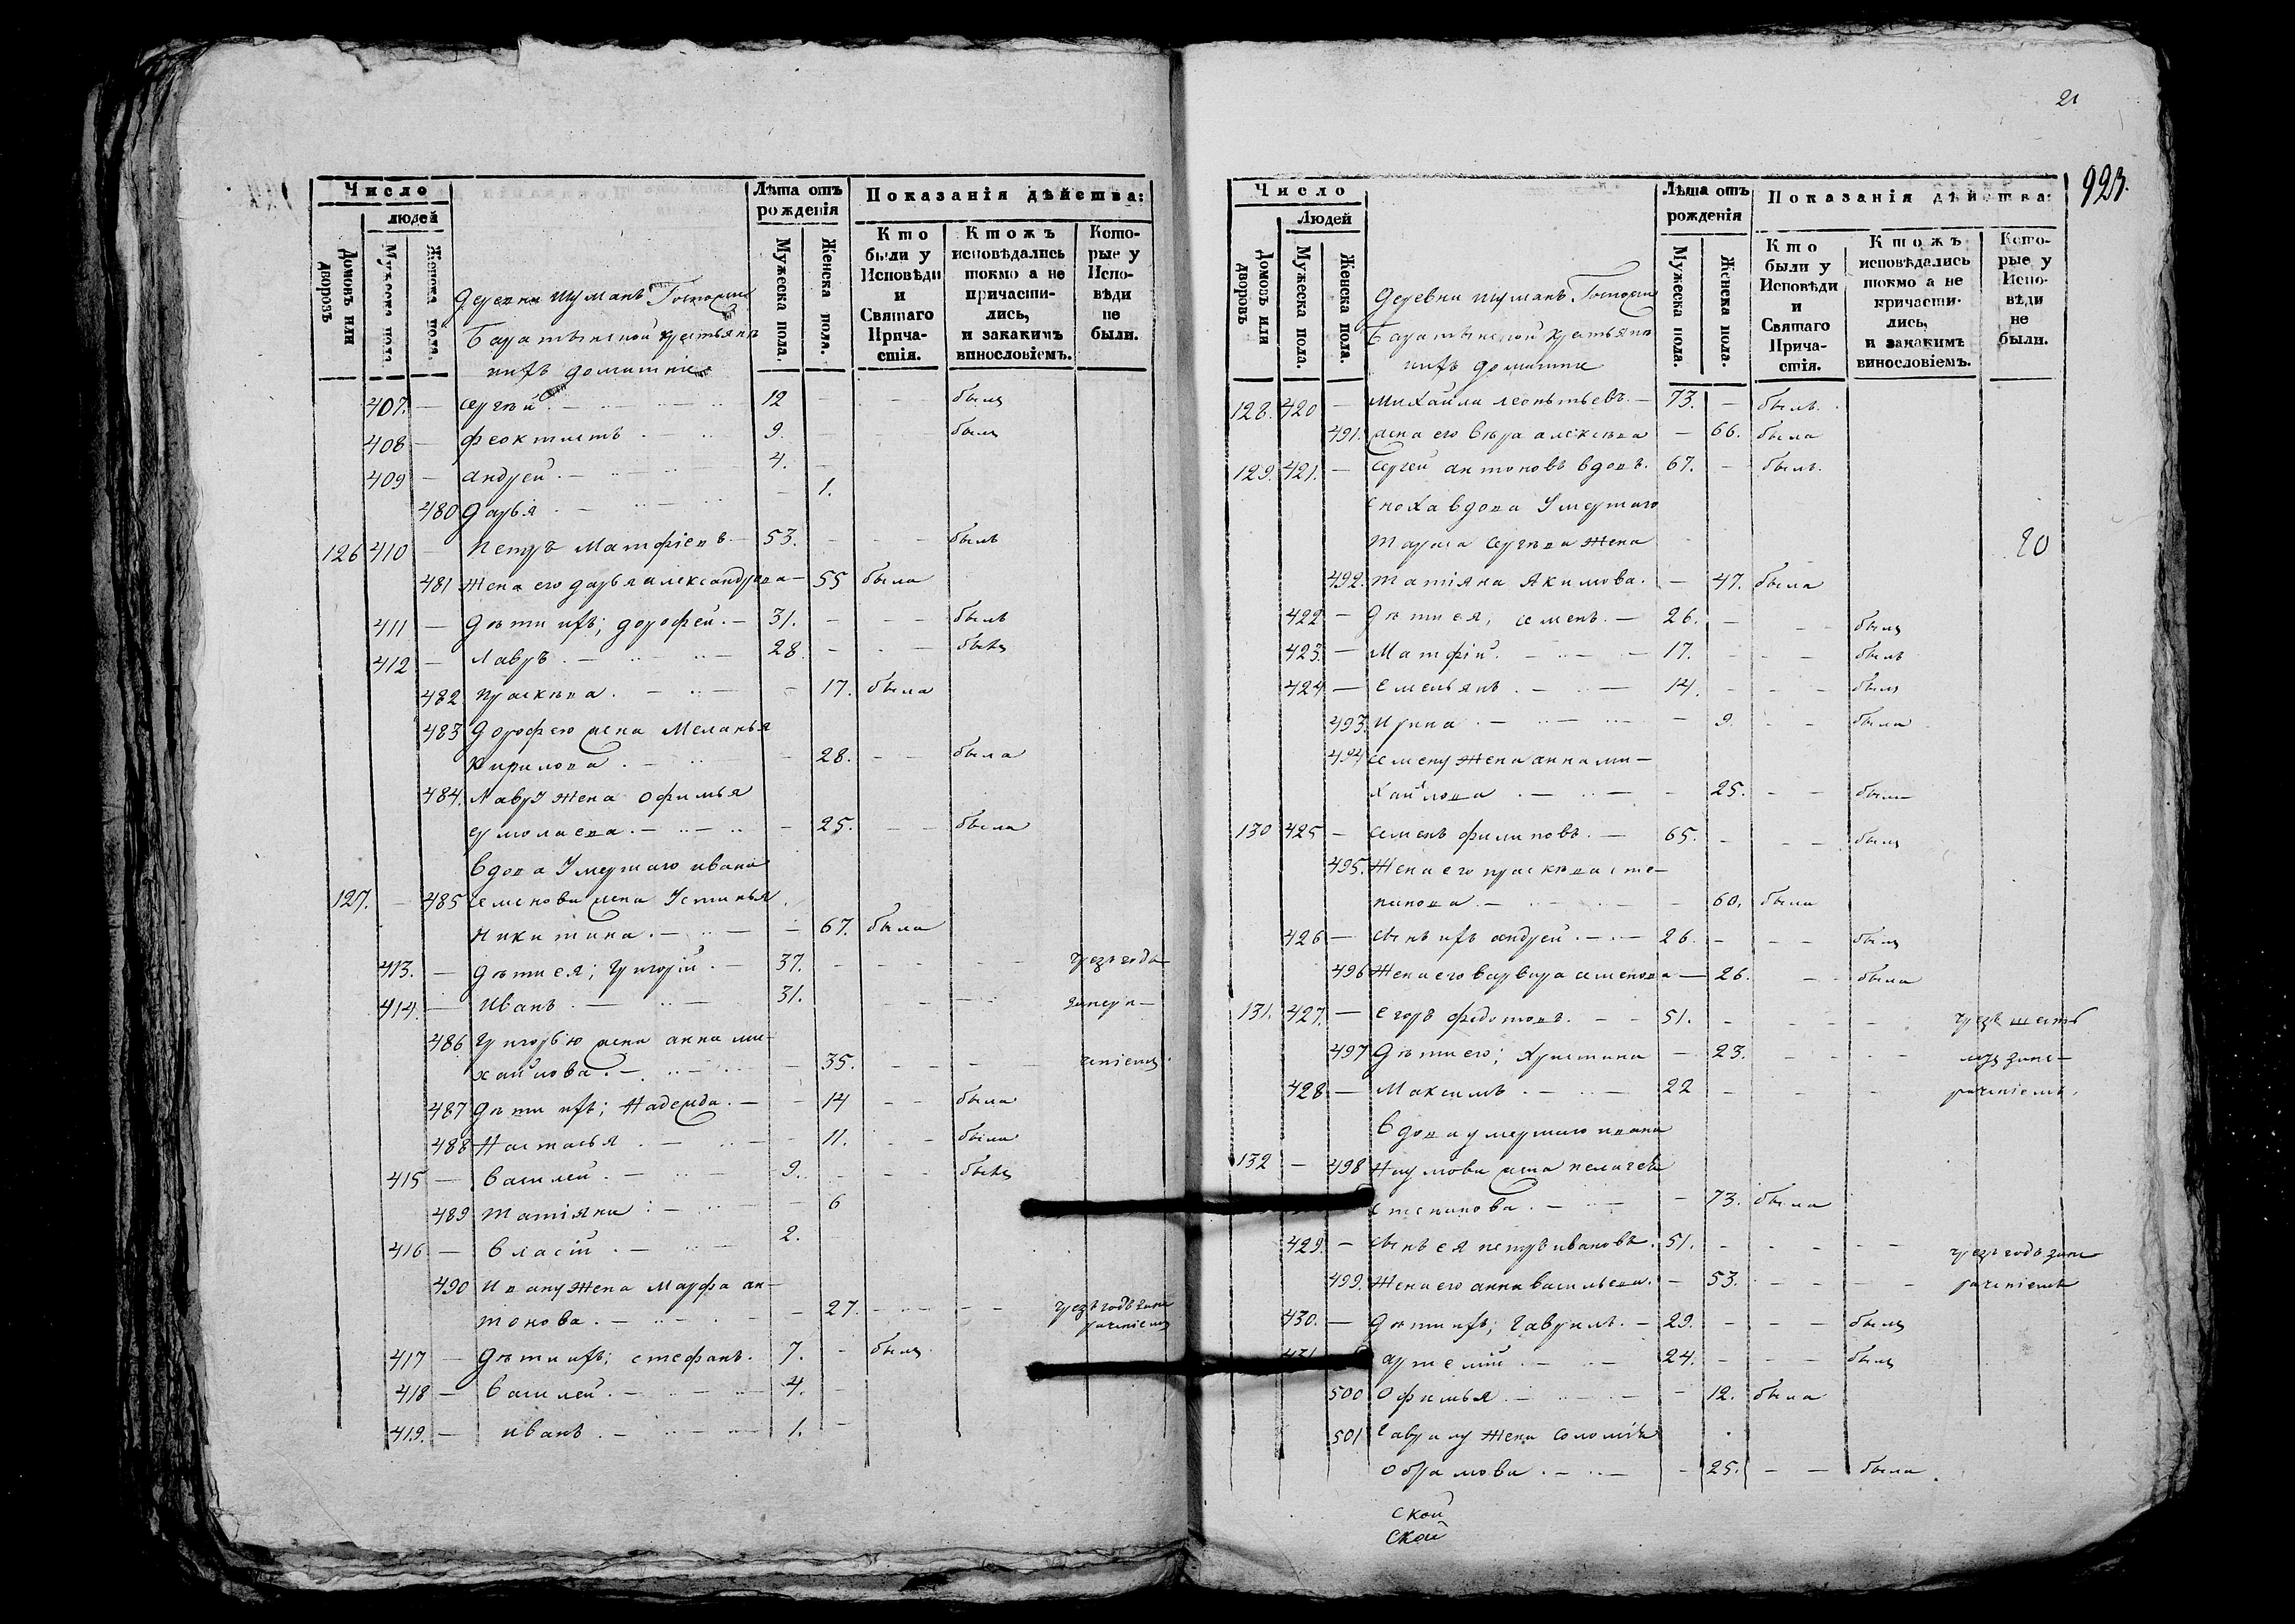 Число
людей
Домовъ или дворовъ
Мужеска пола.
Женска пола.
Деревни Шуманъ Госпожи
Баратынской крестьяне
ихъ домашніе
Лѣта отъ рожденія
Мужеска пола.
Женска пола.
Показанія дѣйства:
Кто были у Исповѣди и Святаго Причастія.
Ктожъ исповѣдались токмо а не причастились, и закакимъ винословіемъ.
Которые у Исповѣди не были.
407. — Сергѣй . — 12 — былъ
408 — Феоктистъ . — 9. — былъ
409 — Андрей . — 4. —
480 Дарья . — 1.
126 410 — Петръ Матфіевъ — 53. — былъ
481 Жена его дарья александрова — 55 была
411 — Дѣти ихъ; дорофей . — 31. — былъ
412 — Лавръ . — 28. — былъ
482 Прасковья . — 17. была
483 Дорофею жена Меланья
Кирилова . — 28. — была
484. Лавру жена Офимья
ермолаева . — 25. — была
вдова Умершаго ивана
127. — 485 Семенова жена Устинья
Никитина . — 67. была
413. — Дѣти ея; Григорій . — 37. — чрезъ годъ
414. — Иванъ . — 31. —
486 Григорью жена анна ми-
хайлова . — 35. —
487 Дѣти ихъ; Надежда . — 14 — была
488 Настасья . — 11. — была
415 — Василей . — 9. — былъ
489 Татіяна . — 6
416 — Власій . — 2.
490 Ивану Жена Марфа ан-
тонова . — 27. — чрезъ годъ
417 — Дѣти ихъ; стефанъ . 7. — былъ
418 — Василей . — 4.
419. — иванъ . — 1. —
21
923.
Число
Людей
Домовъ или дворовъ
Мужеска пола.
Женска пола.
Деревни Шуманъ Госпожи
Баратынской крестьяне
ихъ домашніе
Лѣта отъ рожденія
Мужеска пола.
Женска пола.
Показанія дѣйства:
Кто были у Исповѣди и Святаго Причастія.
Ктожъ исповѣдались токмо а не причастились, и закакимъ винословіемъ.
Которые у Исповѣди не были.
128. 420 — Михайла леонтьевъ — 73. — былъ.
491. жена его вѣра — 66. была
129. 421. — Сергей антоновъ вдовъ. 67. — былъ.
Сноха вдова Умершаго
Тараса Сергѣева Жена
20
492. татіяна Якимова. — 47. была
422 — Дѣти ея; семенъ . — 26. — былъ
423. — Матфій . — 17. — былъ
424 — емельянъ . — 14. — былъ
493. Ирина . — 9. — была
494 Семену Жена анна ми-
хайлова . — 25. — была
130 425 — Семенъ филиповъ . — 65. — былъ
495. Жена его прасковья сте-
панова . — 60. была
426 — Сынъ ихъ андрей . — 26. — былъ
496 Жена его варвара семенова — 26. — была
131. 427. — Егоръ федотовъ . — 51. — чрезъ шесть
497 Дѣти его; Христина — 23. —
428 — Максимъ . — 22 —
Вдова умершаго ивана
132 — 498 Наумова жена пелагея
Степанова . — 73. была
429. — Сынъ ея петръ ивановъ . 51. — чрезъ годъ
499. Жена его анна васильева. — 53. —
430. — Дѣти ихъ; гаврилъ . — 29. — былъ
431 артемій . — 24. — былъ
500 Офимья . — 12. была
501 гаврилу Жена соломія
Абрамова . — 25. — была.
ской
ской